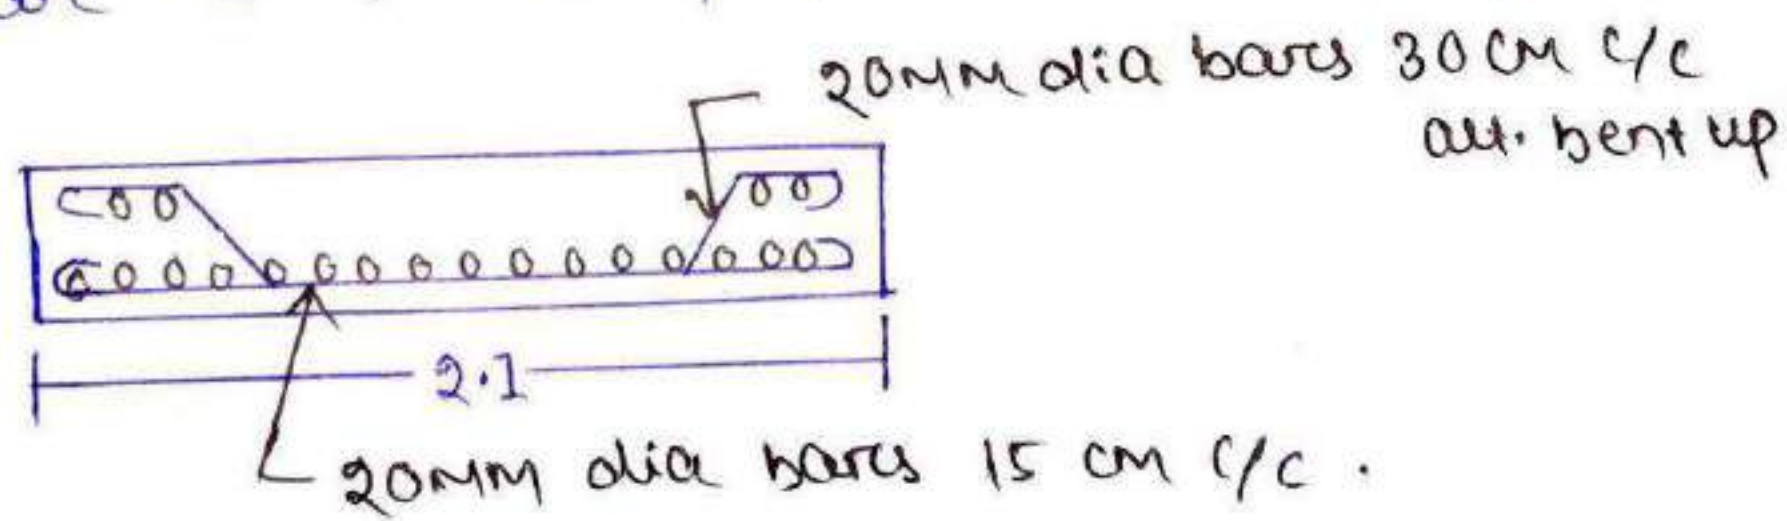 20MM dia bars 30 CM c/c
alt. bent up
2.1
20MM dia bars 15 cm c/c.